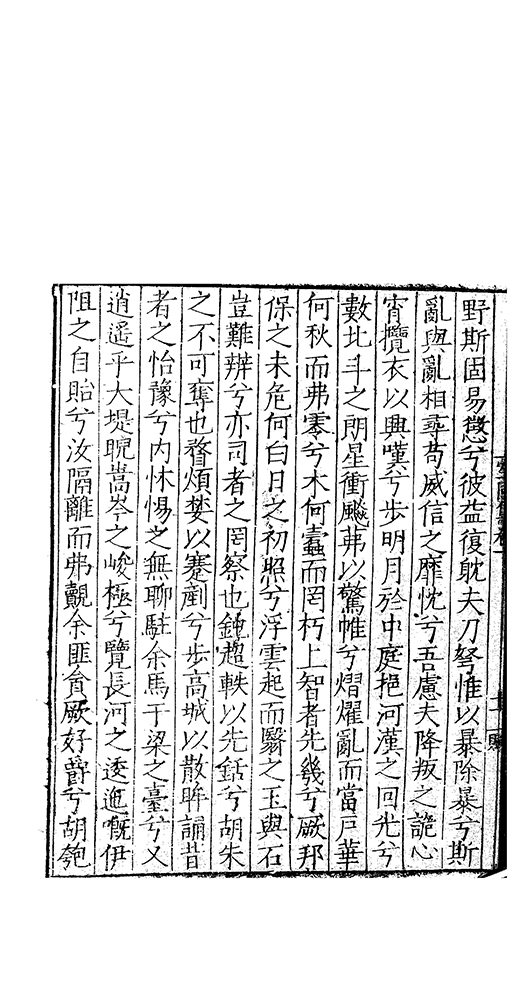 野斯固易愆兮彼益復眈夫刀弩惟以暴除暴兮斯
亂與亂相尋苟威信之靡忱兮吾慮夫降叛之詭心
宵攬衣以興嘆兮步明月於中庭挹河漢之回光兮
數北斗之朗星衝飈茀以驚帷兮熠燿亂而當戶華
何秋而弗零兮木何蠹而罔朽上智者先幾兮厥邦
保之未危何白日之初照兮浮雲起而翳之玉與石
豈難辨兮亦司者之罔察也鍾趨軼以先銛兮胡朱
之不可奪也瞀煩婪以蹇剷兮步高城以散眸誦昔
者之怡豫兮內怵惕之無聊駐余馬于梁之臺兮又
逍遙乎大堤睨嵩岑之峻極兮覽長河之逶迤嘅伊
阻之自貽兮汝隔離而弗覿余匪貪厥好爵兮胡匏